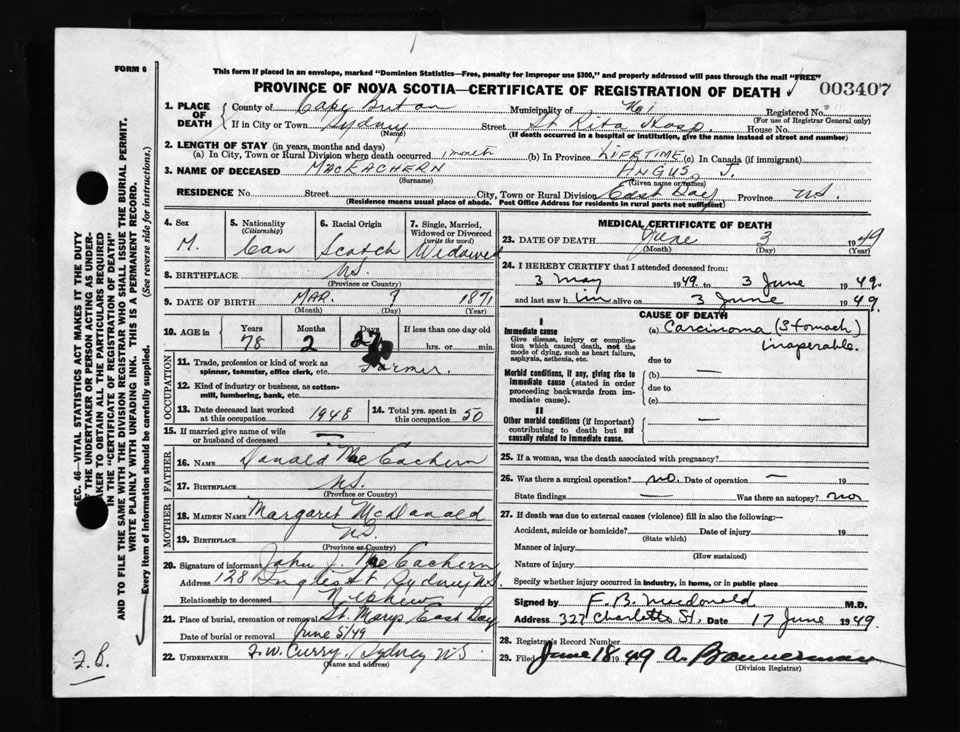 FORM 6
This form if placed in an envelope, marked "Dominion Statistics—Free, penalty for improper use $300," and properly addressed will pass through the mail "FREE"
PROVINCE OF NOVA SCOTIA—CERTIFICATE OF REGISTRATION OF DEATH 003407
1. PLACE OF DEATH County of Cape Breton Municipality of Registered No.
(For use of Registrar General only)
If in City or Town Sydney Street St Rita Hosp. House No.
(Name) (If death occurred in a hospital or institution, give the name instead of street and number)
2. LENGTH OF STAY (in years, months and days)
(a) In City, Town or Rural Division where death occurred 1 month (b) In Province LIFETIME (c) In Canada (if immigrant)
3. NAME OF DECEASED MacEACHERN ANGUS J.
(Surname) (Given name or names)
RESIDENCE No. Street City, Town or Rural Division East Bay Province N.S.
(Residence means usual place of abode. Post Office Address for residents in rural parts not sufficient)
4. Sex M.
5. Nationality (Citizenship) Can
6. Racial Origin Scotch
7. Single, Married, Widowed or Divorced (write the word) Widowed
8. BIRTHPLACE N.S.
(Province or Country)
9. DATE OF BIRTH MAR. 9 1871
(Month) (Day) (Year)
10. AGE in Years Months Days If less than one day old
78 2 27 hrs. or min.
OCCUPATION
11. Trade, profession or kind of work as spinner, teamster, office clerk, etc. Farmer.
12. Kind of industry or business, as cotton-mill, lumbering, bank, etc.
13. Date deceased last worked at this occupation 1948
14. Total yrs. spent in this occupation 50
15. If married give name of wife or husband of deceased —
FATHER
16. NAME Donald MacEachern
17. BIRTHPLACE N.S.
(Province or Country)
MOTHER
18. MAIDEN NAME Margaret McDonald
19. BIRTHPLACE N.S.
(Province or Country)
20. Signature of informant John J. MacEachern
Address 128 Inglis St Sydney N.S.
Relationship to deceased Nephew
21. Place of burial, cremation or removal St. Marys East Bay
Date of burial or removal June 5/49
22. UNDERTAKER F.W. Curry, Sydney N.S.
(Name and address)
MEDICAL CERTIFICATE OF DEATH
23. DATE OF DEATH June 3 1949
(Month) (Day) (Year)
24. I HEREBY CERTIFY that I attended deceased from:
3 May 1949. to 3 June 1949.
and last saw him alive on 3 June 1949.
CAUSE OF DEATH
I
Immediate cause (a) Carcinoma (Stomach)
Give disease, injury or complication which caused death, not the mode of dying, such as heart failure, asphyxia, asthenia, etc. inoperable.
due to
Morbid conditions, if any, giving rise to immediate cause (stated in order proceeding backwards from immediate cause). (b) —
due to
(c)
II
Other morbid conditions (if important) contributing to death but not causally related to immediate cause. —
25. If a woman, was the death associated with pregnancy?
26. Was there a surgical operation? no. Date of operation — 19
State findings — Was there an autopsy? no
27. If death was due to external causes (violence) fill in also the following:—
Accident, suicide or homicide? Date of injury 19
(State which)
Manner of injury
(How sustained)
Nature of injury
Specify whether injury occurred in industry, in home, or in public place
Signed by F. B. Macdonald M.D.
Address 327 Charlotte St. Date 17 June 1949.
28. Registrar's Record Number
29. Filed June 18 1949 A. Bannerman
(Division Registrar)
SEC. 46—VITAL STATISTICS ACT MAKES IT THE DUTY
OF THE UNDERTAKER OR PERSON ACTING AS UNDER-
TAKER TO OBTAIN ALL THE PARTICULARS REQUIRED
IN THE "CERTIFICATE OF REGISTRATION OF DEATH"
AND TO FILE THE SAME WITH THE DIVISION REGISTRAR WHO SHALL ISSUE THE BURIAL PERMIT.
WRITE PLAINLY WITH UNFADING INK. THIS IS A PERMANENT RECORD.
Every item of information should be carefully supplied. (See reverse side for instructions.)
F.B.